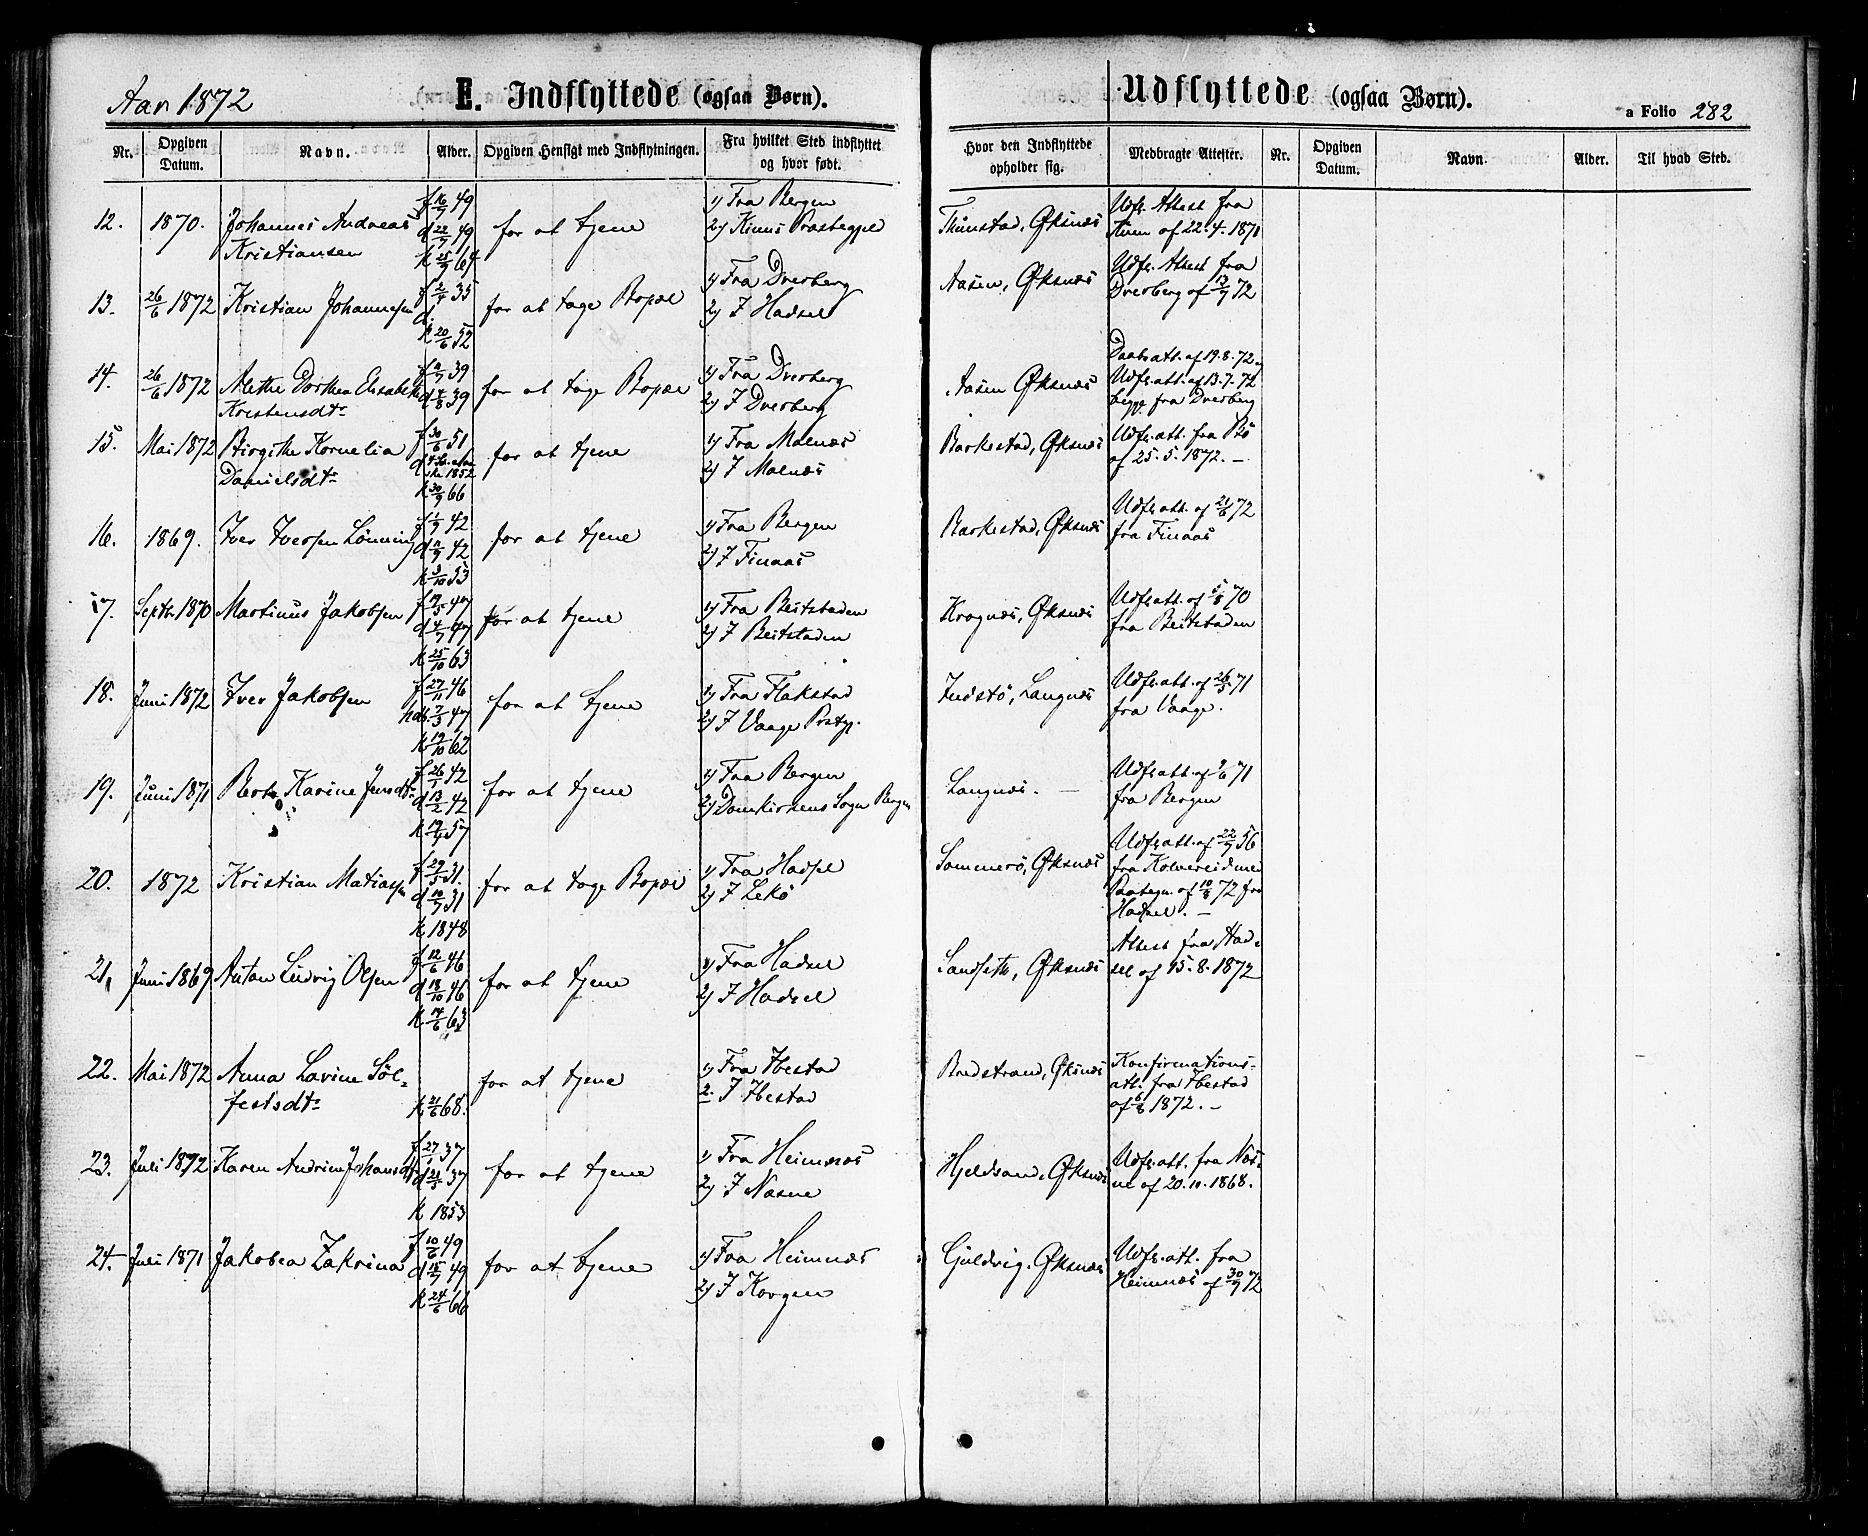 Aar 1872
E. Indflyttede (ogsaa Børn).
Udflyttede (ogsaa Børn).
a Folio 282
Nr.
Opgiven Datum.
Navn.
Alder.
Opgiven Hensigt med Indflytningen.
Fra hvilket Sted indflyttet og hvor født.
Hvor den Indflyttede opholder sig.
Medbragte Attester.
Nr.
Opgiven Datum.
Navn.
Alder.
Til hvad Sted.
12. 1870. Johannes Andreas Kristiansen
f 16/7 49
d 22/7 49
k 25/9 64
for at tjene
1) Fra Bergen
2) Kinns Præstegjeld
Tunstad, Øksnæs
Udfl. Attest fra
Kinn af 22.4.1871
13. 26/6 1872 Kristian Johannesen
f 2/4 35
d.
k 20/6 52
for at tage Bopæl
1) Fra Dverberg
2) I Hadsel
Aasen, Øksnæs
Udfl. Attest fra
Dverberg af 13/7 72
14. 26/6 1872 Alethe Dorthea Elisabeth
Kristensdtr
f 2/7 39
d 4/8 39
for at tage Bopæl
1) Fra Dverberg
2) I Dverberg
Aasen Øksnæs
Daabsatt. af 19.8.72.
Udfl. att. af 13.7.72
begge fra Dverberg
15. Mai 1872 Birgithe Kornelia
Danielsdtr
f 30/6 51
k 30/9 66
for at tjene
1) Fra Malnæs
2) I Malnæs
Barkestad, Øksnæs
Udfl. att. fra Bø
af 25.5.1872. –
16. 1869. Iver Iversen Lønning
f 1/7 42
d 11/9 42
k 3/10 53
for at tjene
1) Fra Bergen
2) I Finaas
Barkestad, Øksnæs
Udfl. att. af 21/6 72
fra Finaas
17. Septr. 1870 Martinus Jakobsen
f 19/5 47
d 4/7 47
k 25/10 63
for at tjene
1) Fra Beitstaden
2) I Beitstaden
Krognæs, Øksnæs
Udfl. att. af 5/8 70
fra Beitstaden
18. Juni 1872 Iver Jakobsen
f 27/11 46
hdb. 7/3 47
k 19/10 62
for at tjene
1) Fra Flakstad
2) I Vaage Prstgj.
Indstø, Langnæs
Udfl. att. af 26/5 71
fra Vaage.
19. Juni 1871 Berte Karine Jensdtr
f 26/1 42
d 13/2 42
k 19/4 57
for at tjene
1) Fra Bergen
2) Domkirkens Sogn Bergen
Langnæs. –
Udfl. att. af 9/6 71
fra Bergen
20. 1872 Kristian Matiasen
f 29/5 31.
d 10/7 31
k 1848
for at tage Bopæl
1) Fra Hadsel
2) I Lekø
Sommerø, Øksnæs
Udfl. att. af 22/7 56
fra Kolvereid med
Paategn. af 10/8 72 fra
Hadsel. –
21, Juni 1869 Anton Ludvig Olsen
f 12/6 46
d 18/10 46
k 14/6 63
for at tjene
1) Fra Hadsel
2) I Hadsel
Sandseth, Øksnæs
Attest fra Had-
sel af 15.8.1872
22. Mai 1872 Anna Lavine Søl-
festsdtr
k 21/6 68.
for at tjene
1) Fra Ibestad
2. I Ibestad
Bredstrand, Øksnæs
Konfirmations-
att. fra Ibestad
af 6/8 1872. –
23. Juli 1872 Karen Andrine Johansdtr
f 27/1 37
d 21/3 37
k 1853
for at tjene
1) Fra Heimnæs
2) I Næsne
Hjeldsand, Øksnæs
Udfl. att. fra Næs-
ne af 20.10.1868.
24. Juli 1871 Jakobea Zakrina
f 10/6 49
d 15/7 49
k 24/6 66
for at tjene
1) Fra Heimnæs
2) I Korgen
Gjuldvig. Øksnæs
Udfl. att. fra
Heimnæs af 30/7 72